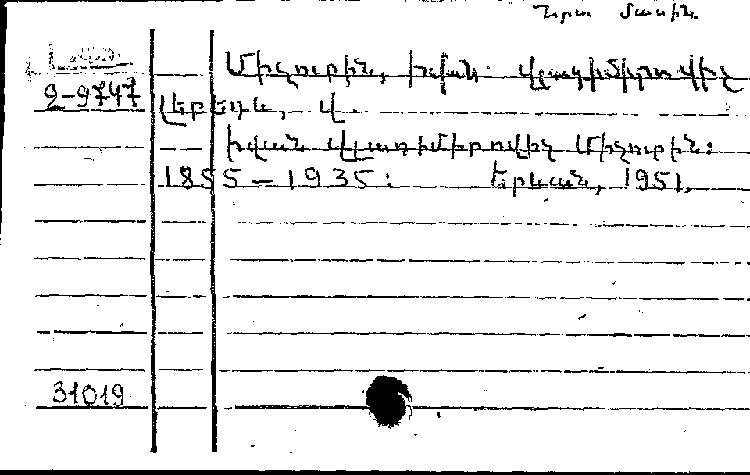 Նրա մասին.
Միչուրին, Իվան Վլադիմիրովիչ
2-9747
Լեբեդև, Վ.
Իվան Վլադիմիրովիչ Միչուրին:
1855-1935: Երևան, 1951.
31019